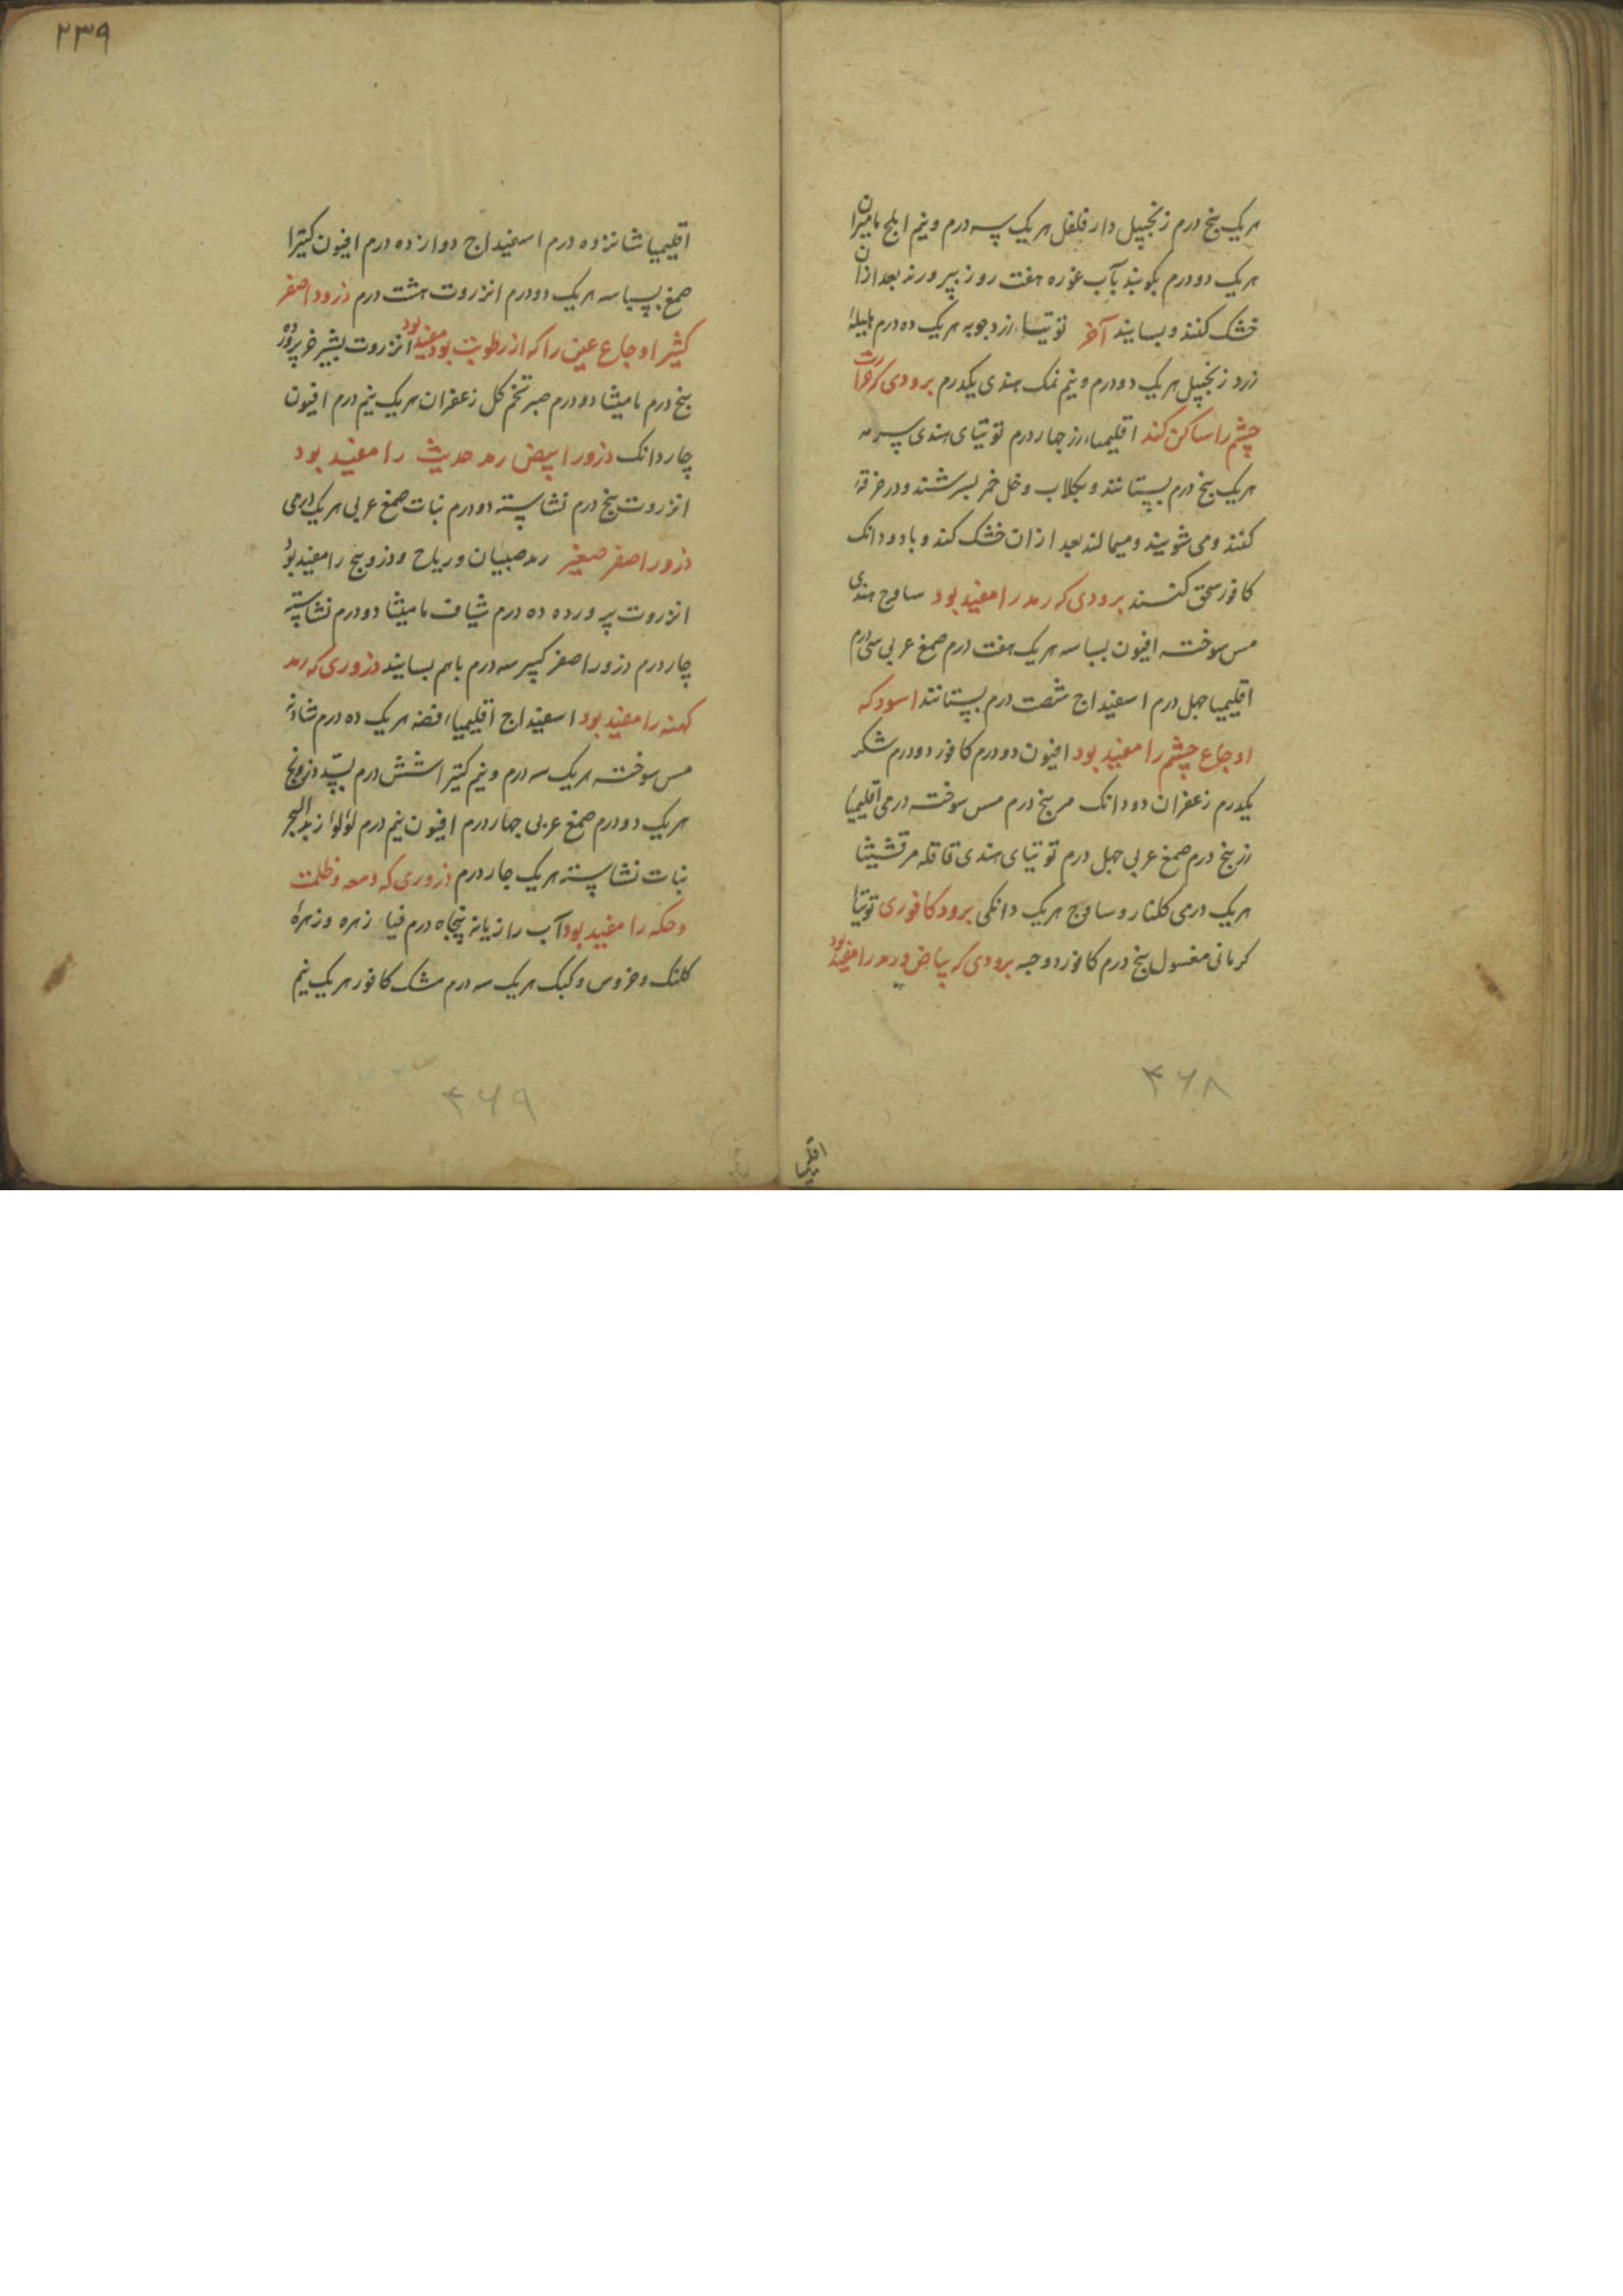 هریک پنج درم زنجپیل دار فلفل هریک سه درم و نیم املج مامیران
هریک دو درم بکوبند بآب غوره هفت روز بپرورند بعد ازان
خشک کنند و بسایند آخر توتیا زردچوبه هریک ده درم هلیلهٔ
زرد زنجپیل هریک دو درم و نیم نمک هندی یکدرم برودی که حرارت
چشم را ساکن کند اقلیمیاء زر چهار درم توتیای هندی سرمه
هریک پنج درم بستانند و بکلاب و خل خمر بسرشند و در خرقهٔ
کنند و می شویند و میمالند بعد ازان خشک کنند و با دو دانک
کافور سحق کنند برودی که رمد را مفید بود ساذج هندی
مس سوخته افیون بسباسه هریک هفت درم صمغ عربی سی درم
اقلیمیا چهل درم اسفیداج شصت درم بستانند اسود که
اوجاع چشم را مفید بود افیون دو درم کافور دو درم شکر
یکدرم زعفران دو دانک مر پنج درم مس سوخته درمی اقلیمیاء
زر پنج درم صمغ عربی چهل درم توتیای هندی قاقله مرقشیثا
هریک درمی کلنار و ساذج هریک دانکی برود کافوری توتیاء
کرمانی مغسول پنج درم کافور دو حبه برودی که بیاض و رمد را مفید بود
۴۶۸
اقلیمیا
۲۳۹
اقلیمیا شانزده درم اسفیداج دوازده درم افیون کتیرا
صمغ بسباسه هریک دو درم انزروت هشت درم ذرور اصفر
کثیر اوجاع عین را که از رطوبت بود مفید بود انزروت بشیر خر پرورده
پنج درم مامیثا دو درم صبر تخم کل زعفران هریک نیم درم افیون
چار دانک ذرور ابیض رمد حدیث را مفید بود
انزروت پنج درم نشاسته دو درم نبات صمغ عربی هریک درمی
ذرور اصفر صغیر رمد صبیان و ریاح و وذروینج را مفید بود
انزروت پرورده ده درم شیاف مامیثا دو درم نشاسته
چار درم ذرور اصفر کبیر سه درم باهم بسایند ذروری که رمد
کهنه را مفید بود اسفیداج اقلیمیاء فضه هریک ده درم شادنه
مس سوخته هریک سه درم و نیم کتیرا شش درم بسد
هریک دو درم صمغ عربی چهار درم افیون نیم درم لؤلؤ زبد البحر
نبات نشاسته هریک چار درم ذروری که دمعه و ظلمت
و حکه را مفید بود آب رازیانه پنجاه درم زهره و زهرهٔ
کلنک و خروس و کبک هریک سه درم مشک کافور هریک نیم
۴۶۹